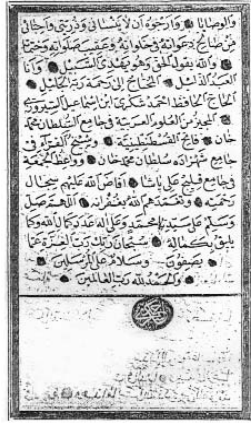 والوصايا وارجوه ان لا ينساني وذريتي واخاني
من صالح دعواته في خلواته وعقيب صلواته وختما
والله يقول الحق وهو يهدي السبيل وانا
العبد الذليل المحتاج الى رحمة ربه الجليل
الحاج الحافظ احمد شكري ابن اسماعيل السيروزي
المدرس بالعلوم العربية في جامع السلطان محمد
خان فاتح القسطنطينية وشيخ القراء في
جامع شهزاده سلطان محمد خان وواعظ الجمعة
في جامع قليج علي پاشا افاض الله عليهم سجال
رحمته وتغمدهم الله بغفرانه اللهم صل
وسلم على سيدنا محمد وعلى اله عدد كمال الله وكما
يليق بكماله سبحان ربك رب العزة عما
يصفون وسلام على المرسلين
والحمد لله رب العالمين